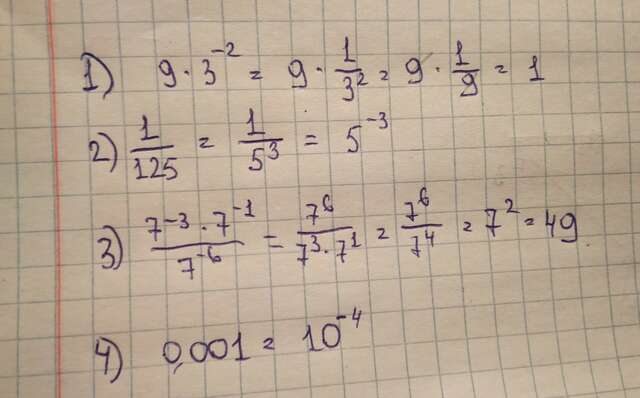 1) 9 · 3⁻² = 9 · 1/3² = 9 · 1/9 = 1
2) 1/125 = 1/5³ = 5⁻³
3) 7⁻³ · 7⁻¹ / 7⁻⁶ = 7⁶ / 7³ · 7¹ = 7⁶/7⁴ = 7² = 49
4) 0,001 = 10⁻⁴